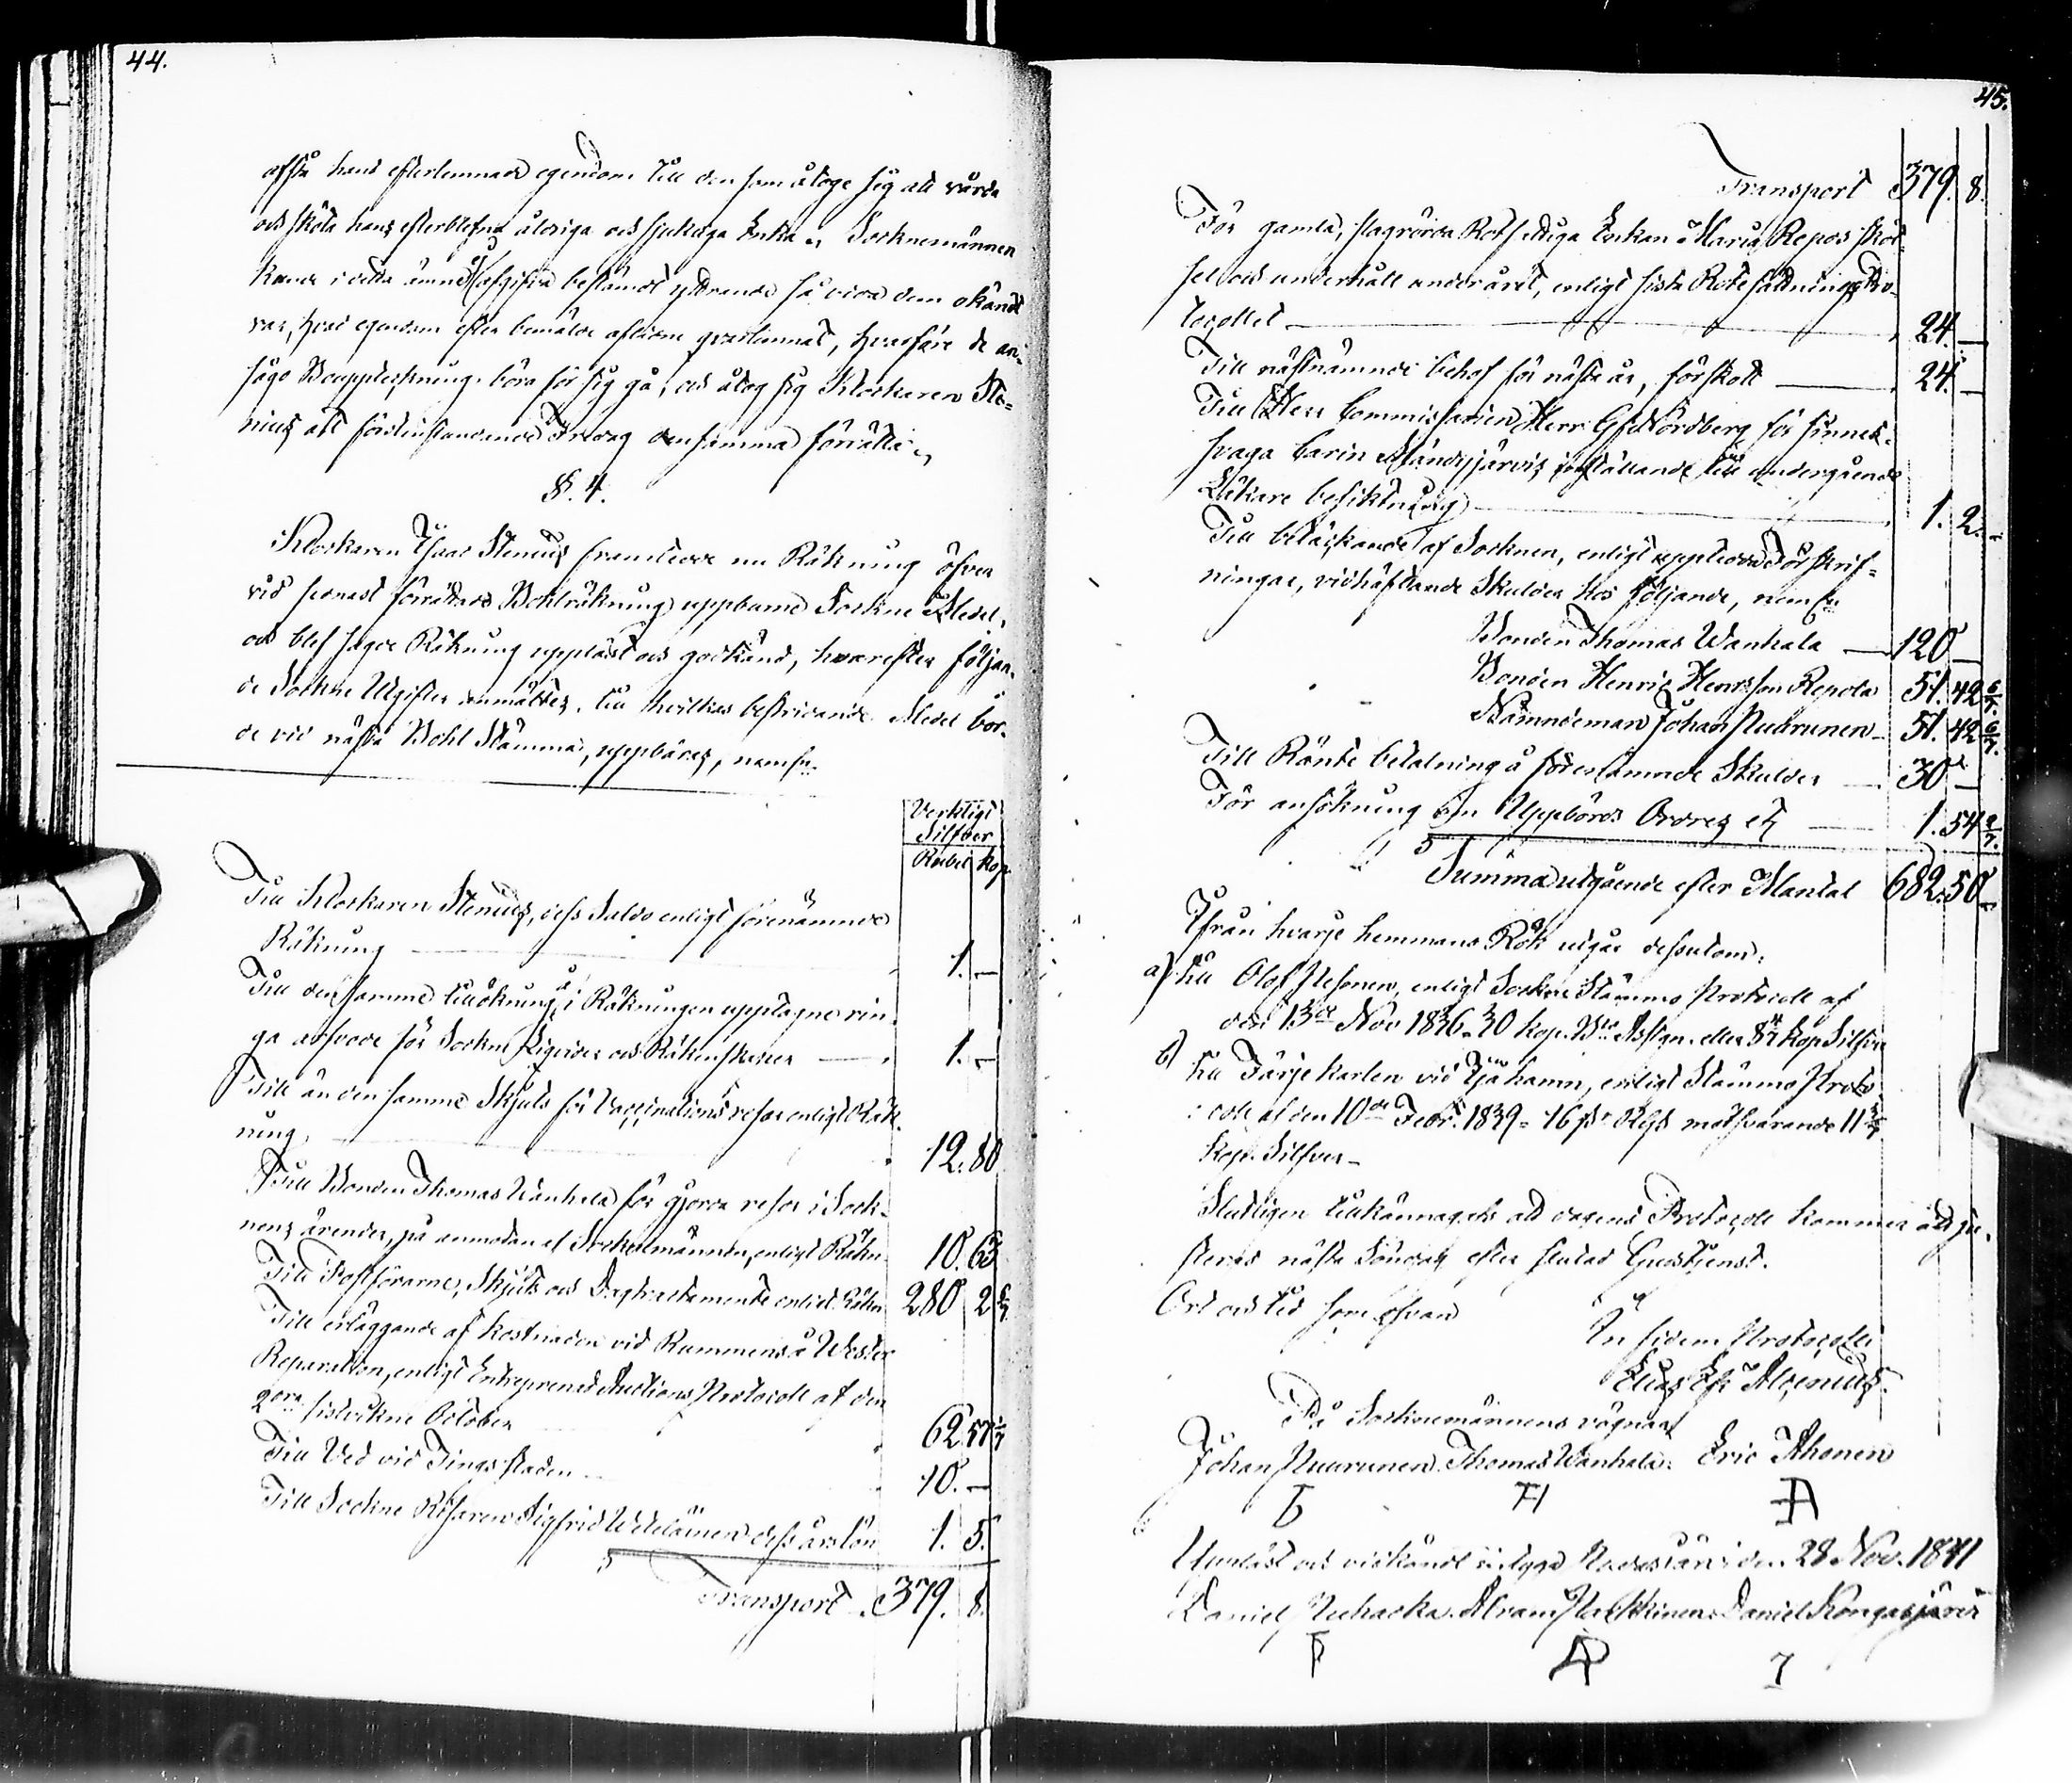 44.
afstå hans efterlemnade egendom till den som åtoge sig att vårda
och sköta hans efterblefna åldriga och sjukliga Enka. Socknemännen
kunde i detta ämne ej afgifva bestämdt yttrande så vida dem okändt
var, hvad egendom efter bemälde aflidne qvarlemnat, hvarföre de an-
sågo Bouppteckning böra för sig gå, och åtog sig Klockaren Ste-
nius att förstinstundande Fredag densamma förrätta.
§. 4.
Klockaren Isaac Stenius framlade nu Räkning öfver
vid senast förrättade Bohlräkning uppburne Sockne Medel,
och blef sagde Räkning uppläst och godkänd, hvarefter följan-
de Sockne Utgifter anmältes, till hvilkas bestridande Medel bor-
de vid nästa Bohl Stämma, uppbäras, neml:
Verkligt
Silfver
Rubel kop
Till Klockaren Stenius, dess Saldo enligt förenämnde
Räkning 1. —
Till densamme tillökning å i Räkningen upptagne rin-
ga arfvode för Sockne Skrifvare och Räkenskaper 1. —
Till än densamme Skjuts för Vaccinations resor enligt Räk-
ning 12. 80
Till Bonden Thomas Wanhala för gjorde resor i Sock-
nens ärender, på anmodan af Socknemännen, enligt Räkn. 10. 63
Till Postförarne, Skjuts och Dagtraktamente enligt Räkn 280 2 6/7
Till erläggande af kostnaden vid Rummens å Wester
Reparation, enligt Entreprenad Auctions Protocoll af den
2dra sistvikne October 62 57 1/7
Till Ved vid Tingsstaden 10. —
Till Sockne Rifaren Sigfrid dess årslön 1. 5.
Transport 379. 8.
45.
Transport 379. 8.
För gamla, slagrörda Rotfattiga Enkan Maria Repos sköt-
sel och underhåll under året, enligt sista Rotesättnings Pro-
tocollet 24. —
Till nästnämnde behof för nästa år, förskott 24. —
Till Herr Commissarien Herr Nordberg för sinnes-
svaga Carin inställande till undergående
Läkare besiktning 1. 2. -
Till betäckande af Socknen, enligt upptedde Förskrif-
ningar, vidhäftande Skulder hos följande, neml:
Bonden Thomas Wanhala 120 —
Bonden Henric Henrsson Repola 51. 42 6/7
Nämndeman Johan Nuurunen 51. 42 6/7.
Till Ränte betalning å förenämnde Skulder 30 —
För ansökning om Uppbörds Ordres etc 1. 54 2/7.
Summa utgående efter Mantal 682. 50 -
Ifrån hvarje hemmans Rök utgår dessutom:
a) till Olof enligt Sockne Stämmo Protocoll af
den 13de Nov 1836 30 kop. Bco Assign. eller 8 4/7 kop Silfver
b) till Färjekarlen vid hamn, enligt Stämmo Proto-
coll af den 10de Febr. 1839 = 16 sk. Rgs motsvarande 11 3/7
kop. Silfver —
Slutligen tillkännagafs att dagens Protocoll kommer att ju-
steras nästa Söndag efter slutad Gudstjenst.
Ort och tid som ofvan
In fidem Protocolli
Elias Alcenius.
På Socknemännens vägnar
Johan Nuurunen. Thomas Wanhala. Eric Ahonen
Uppläst och vidkändt intyga den 28 Nov. 1841
Daniel Abram Daniel Kongasjärvi